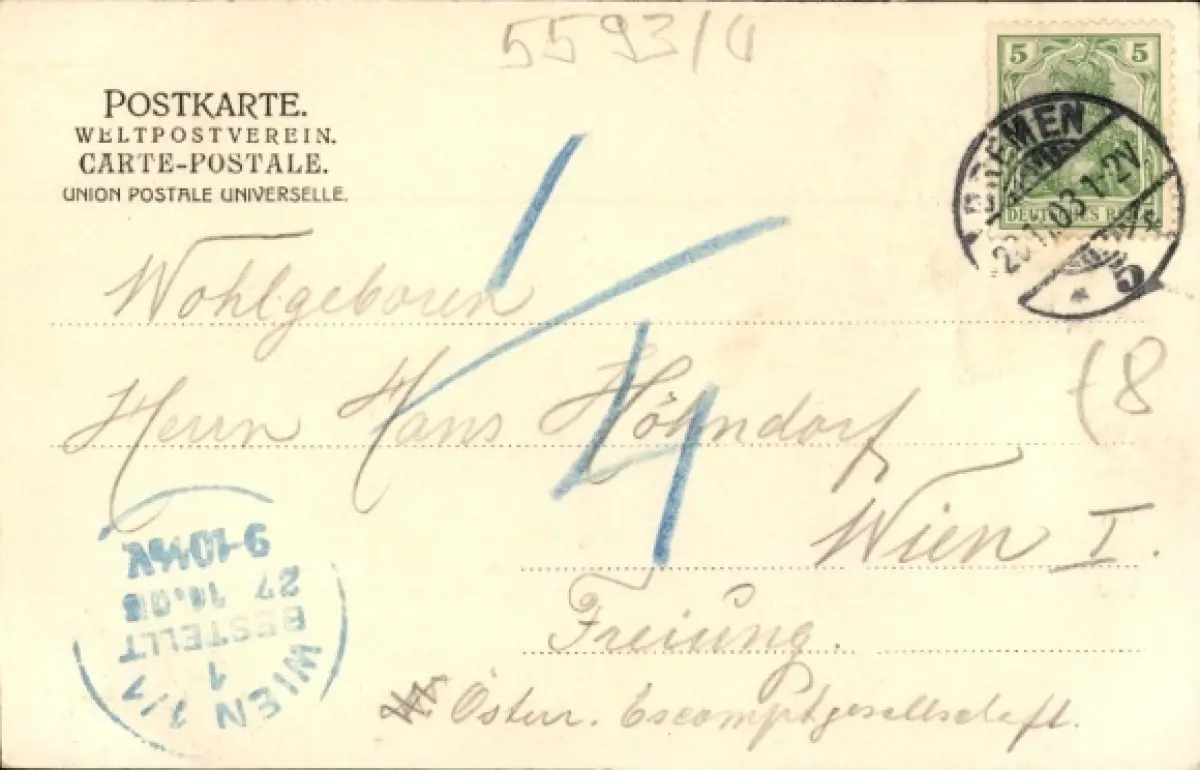 5593/
5 5
POSTKARTE.
WELTPOSTVEREIN.
CARTE-POSTALE.
UNION POSTALE UNIVERSELLE.
BREMEN
03 1-2V.
5
DEUTSCHES REICH
Wohlgeboren
Herrn Hans Höhndorf
(8
Wien I.
Freiung.
Österr. Escomptgesellschaft.
1/4
WIEN 1/1
1
BESTELLT
27 11.03
9-10½V